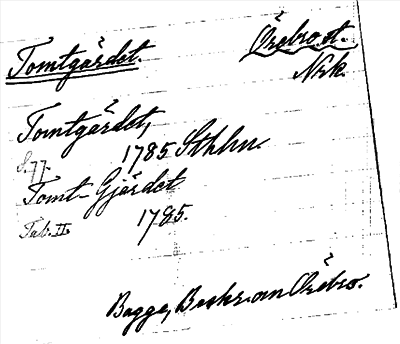 Tomtgärdet. Örebro st.
Nrk.
Tomtgärdet,
1785 Sthlm.
S. 77.
Tomt-Gjärdet
1785.
Tab. II.
Bagge, Beskr. om Örebro.